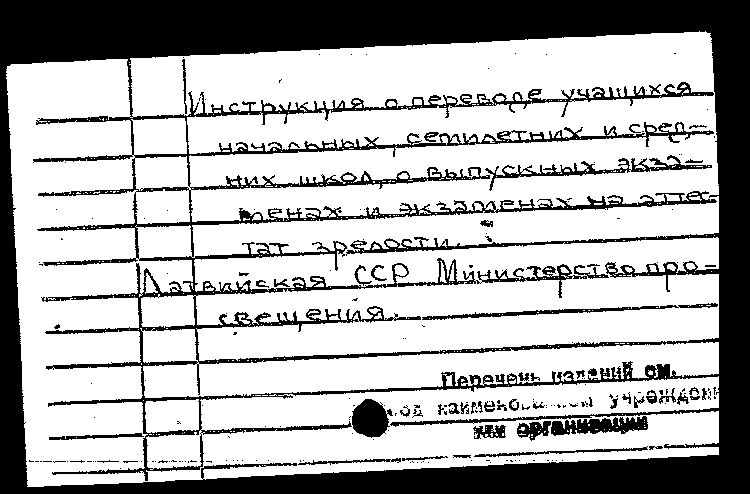 Инструкция о переводе учащихся
начальных, семилетних и сред-
них школ, о выпускных экза-
менах и экзаменах на аттес-
тат зрелости.
Латвийская ССР Министерство про-
свещения.
Перечень изданий см.
под наименованием учрежден
или организации